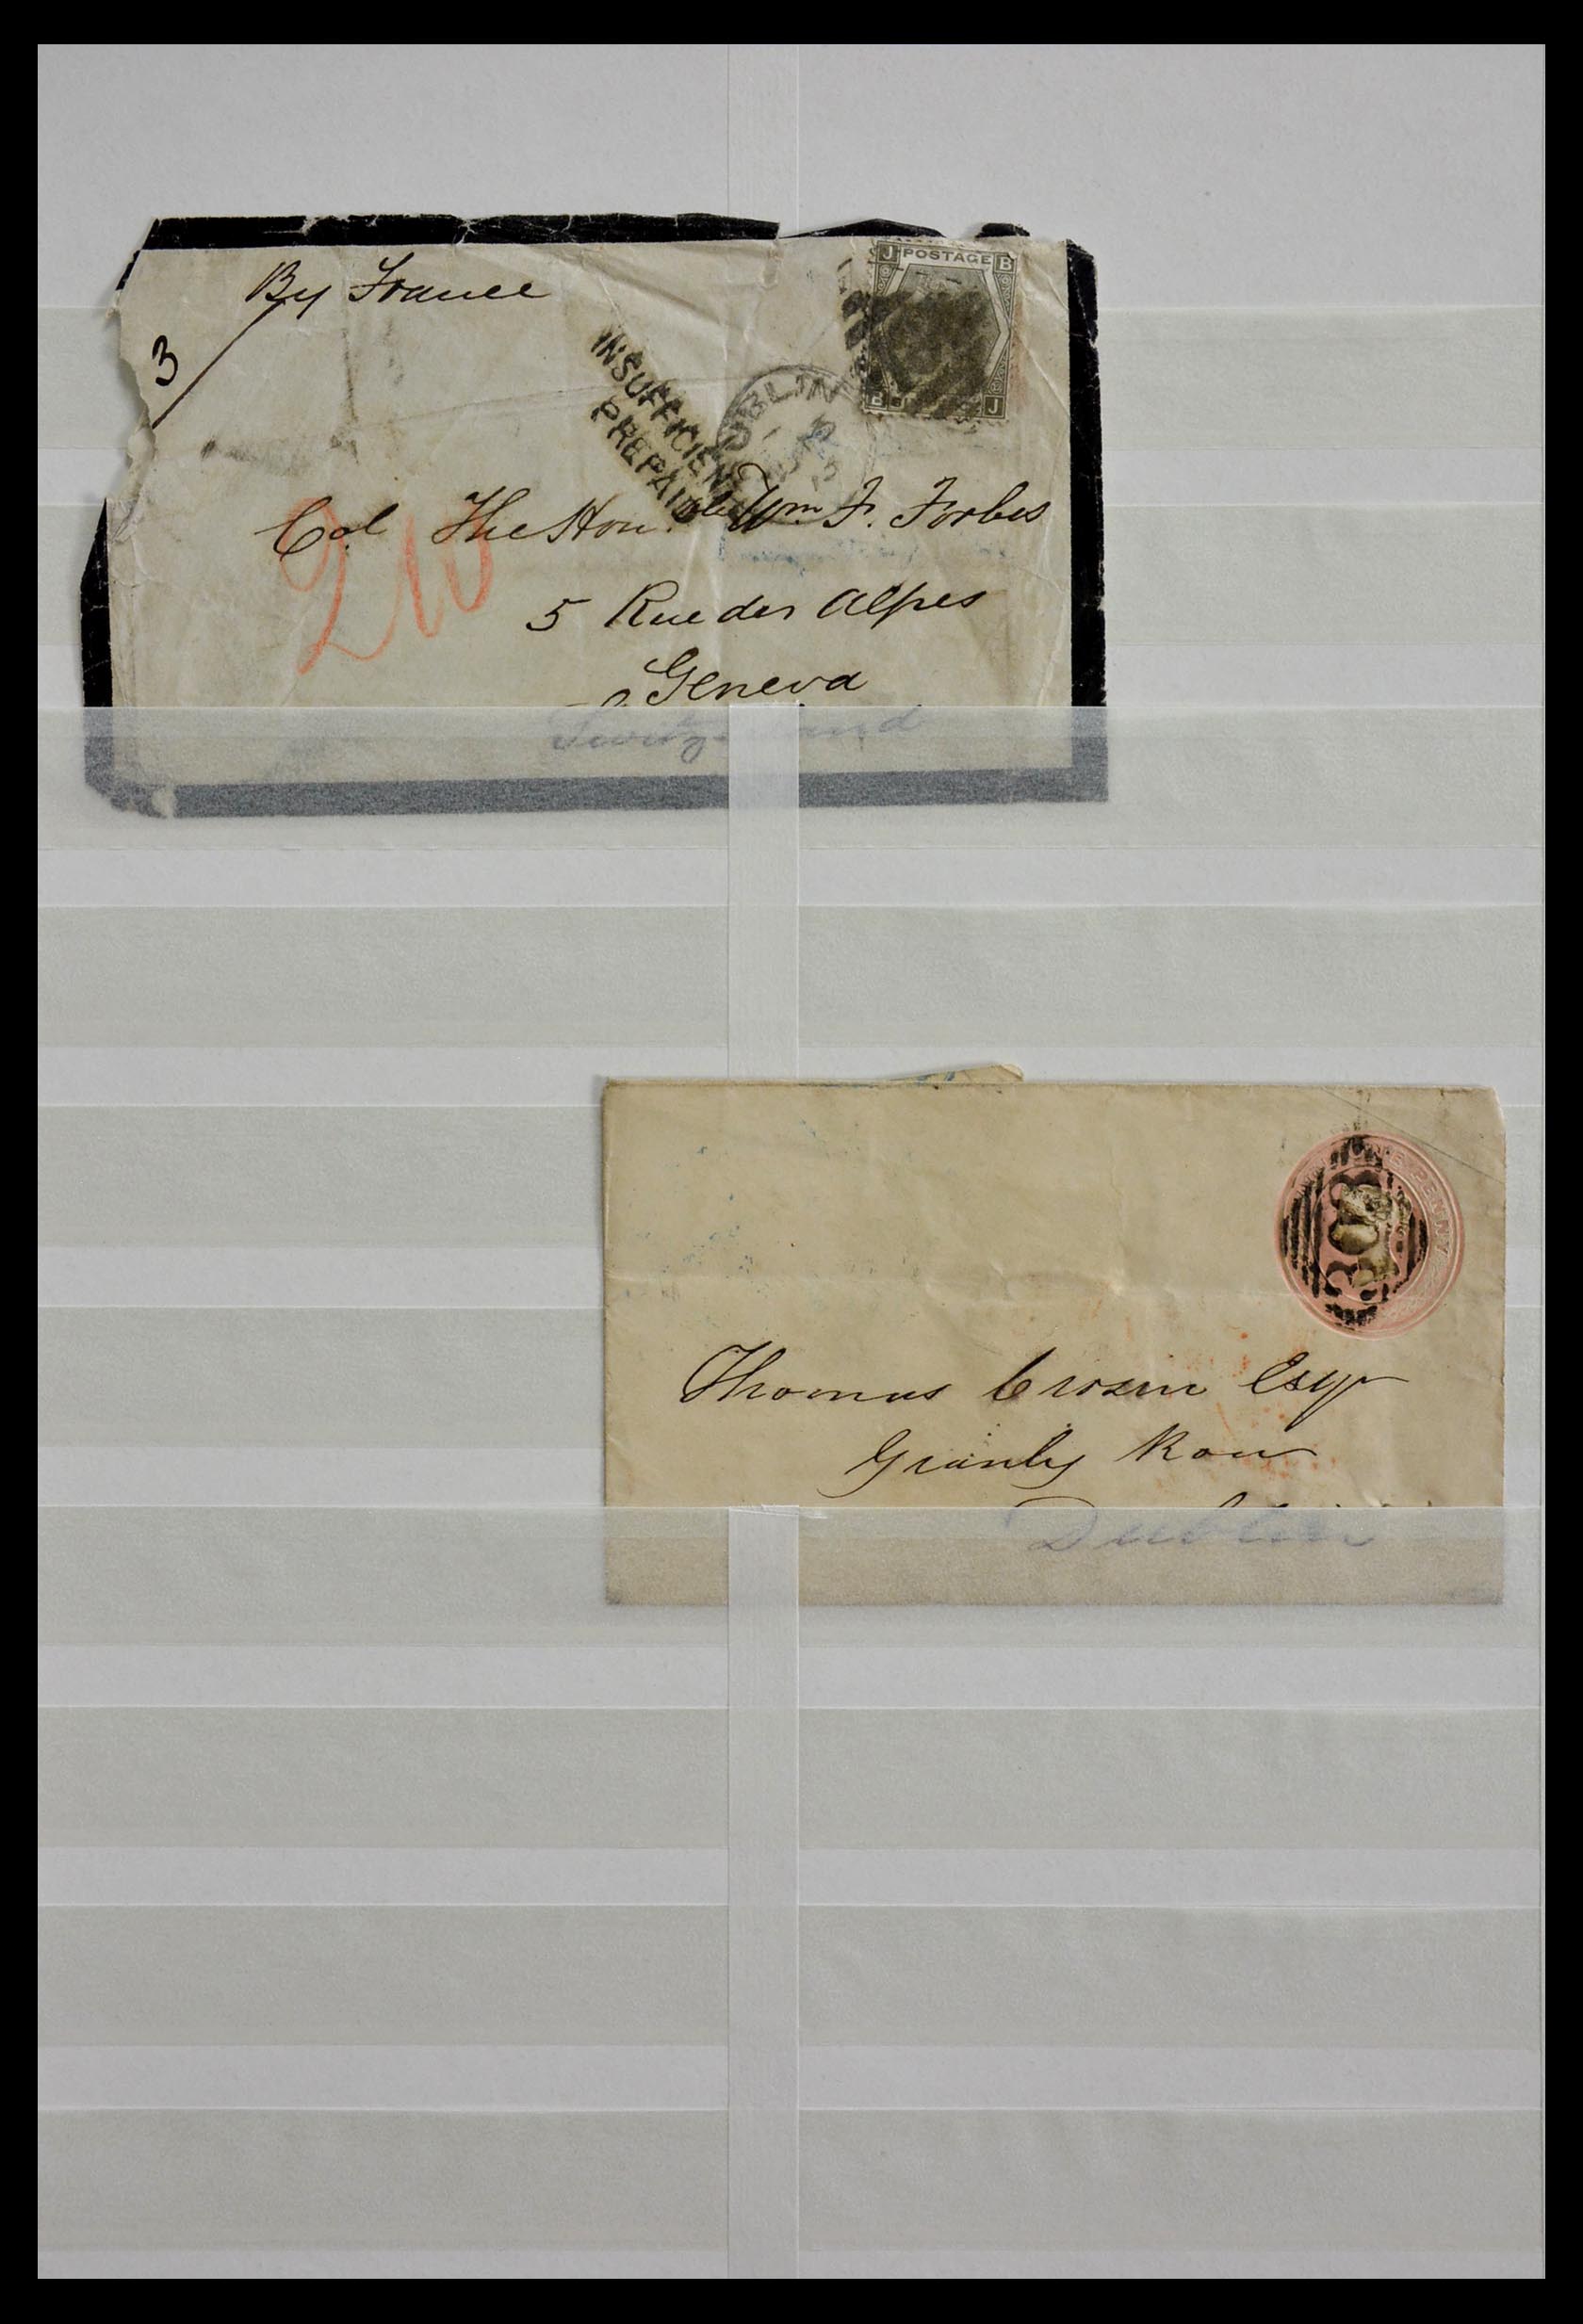 By France
3
J POSTAGE B
B J
INSUFFICIENTLY
PREPAID
DUBLIN
Col The Honble Wm F. Forbes
210
5 Rue des Alpes
Geneva
Switzerland
ONE PENNY
303
Thomas Crozier Esqr
Granby Row
Dublin